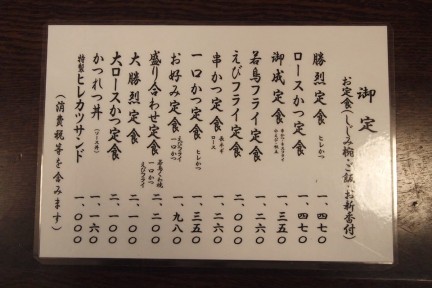 御定
お定食(しじみ椀・ご飯・お新香付)
勝烈定食 ヒレかつ 一、四七〇
ロースかつ定食 一、四七〇
御成定食 一、三五〇
若鳥フライ定食 一、二六〇
えびフライ定食 二、〇〇〇
串かつ定食 長ネギ ロース 一、二六〇
一口かつ定食 ヒレかつ 一、三五〇
お好み定食 えびフライ 一口かつ 一、九八〇
盛り合わせ定食 一口かつ えびフライ 二、〇〇〇
大勝烈定食 二、一〇〇
大ロースかつ定食 二、一〇〇
かつれつ丼 (ソース丼) 一、一六〇
特製ヒレカツサンド 一、〇〇〇
(消費税等を含みます)